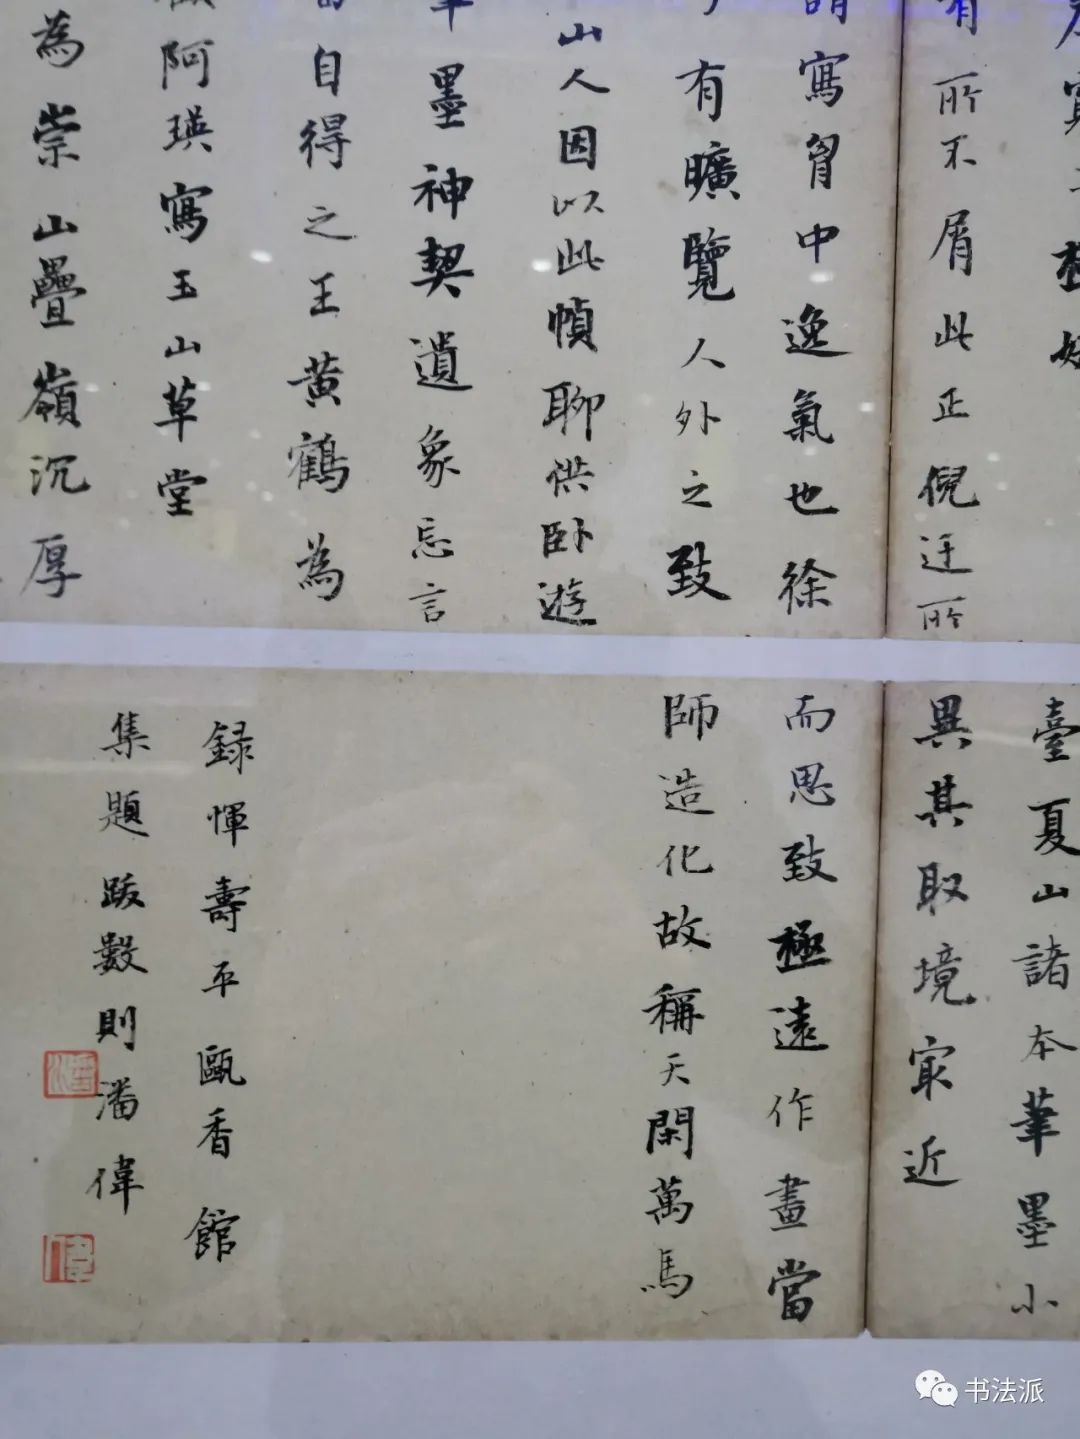 有所不屑此正倪迂所
謂寫胷中逸氣也徐
有曠覽人外之致
山人因以此幀聊供臥遊
墨神契遺象忘言
自得之王黃鶴為
阿瑛寫玉山草堂
為崇山疊嶺沉厚
臺夏山諸本筆墨小
異其取境冣近
而思致極遠作畫當
師造化故稱天閑萬馬
録惲壽平甌香館
集題跋數則潘偉
潘
书法派